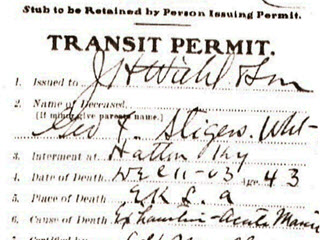 Stub to be Retained by Person Issuing Permit.
TRANSIT PERMIT.
1. Issued to J H Wiehl & Son
2. Name of Deceased,
[If minor give parents name.]
Geo F. Stigers. Wht-
3. Interment at Hattin Ky
4. Date of Death Dec 11-03 Age 43
5. Place of Death E K L. a
6. Cause of Death Exhaustion-Acute Mania